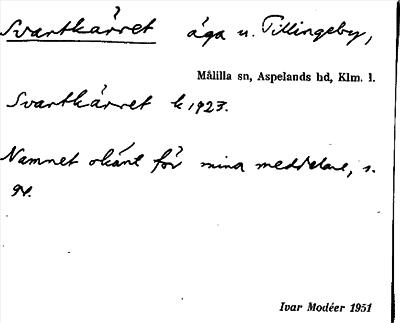 Svartkärret äga u. Tillingeby,
Målilla sn, Aspelands hd, Klm. l.
Svartkärret k 1923.
Namnet okänt för mina meddelare, s.
gv.
Ivar Modéer 1951